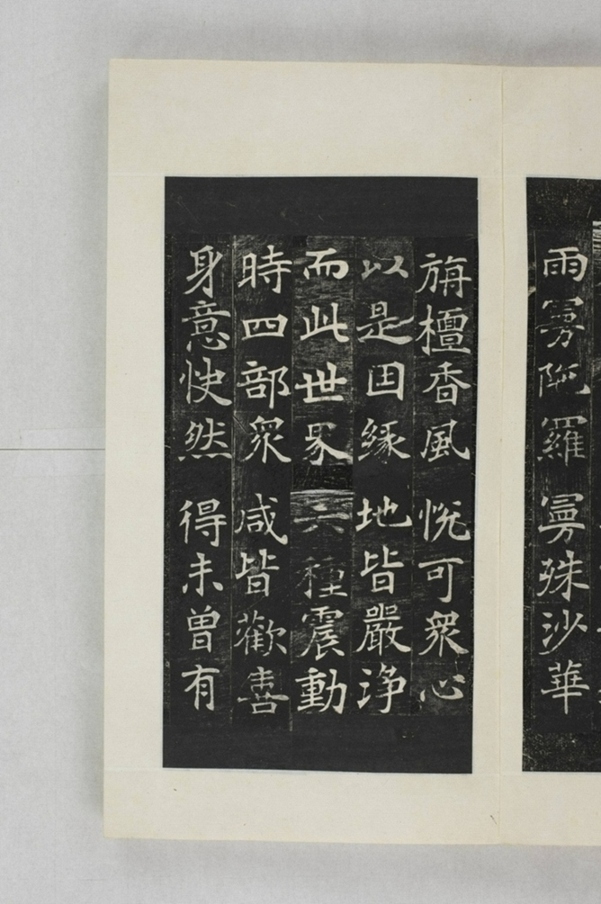 雨曼陁羅 曼殊沙華
旃檀香風 悅可衆心
以是因緣 地皆嚴浄
而此世界 六種震動
時四部衆 咸皆歡喜
身意快然 得未曽有